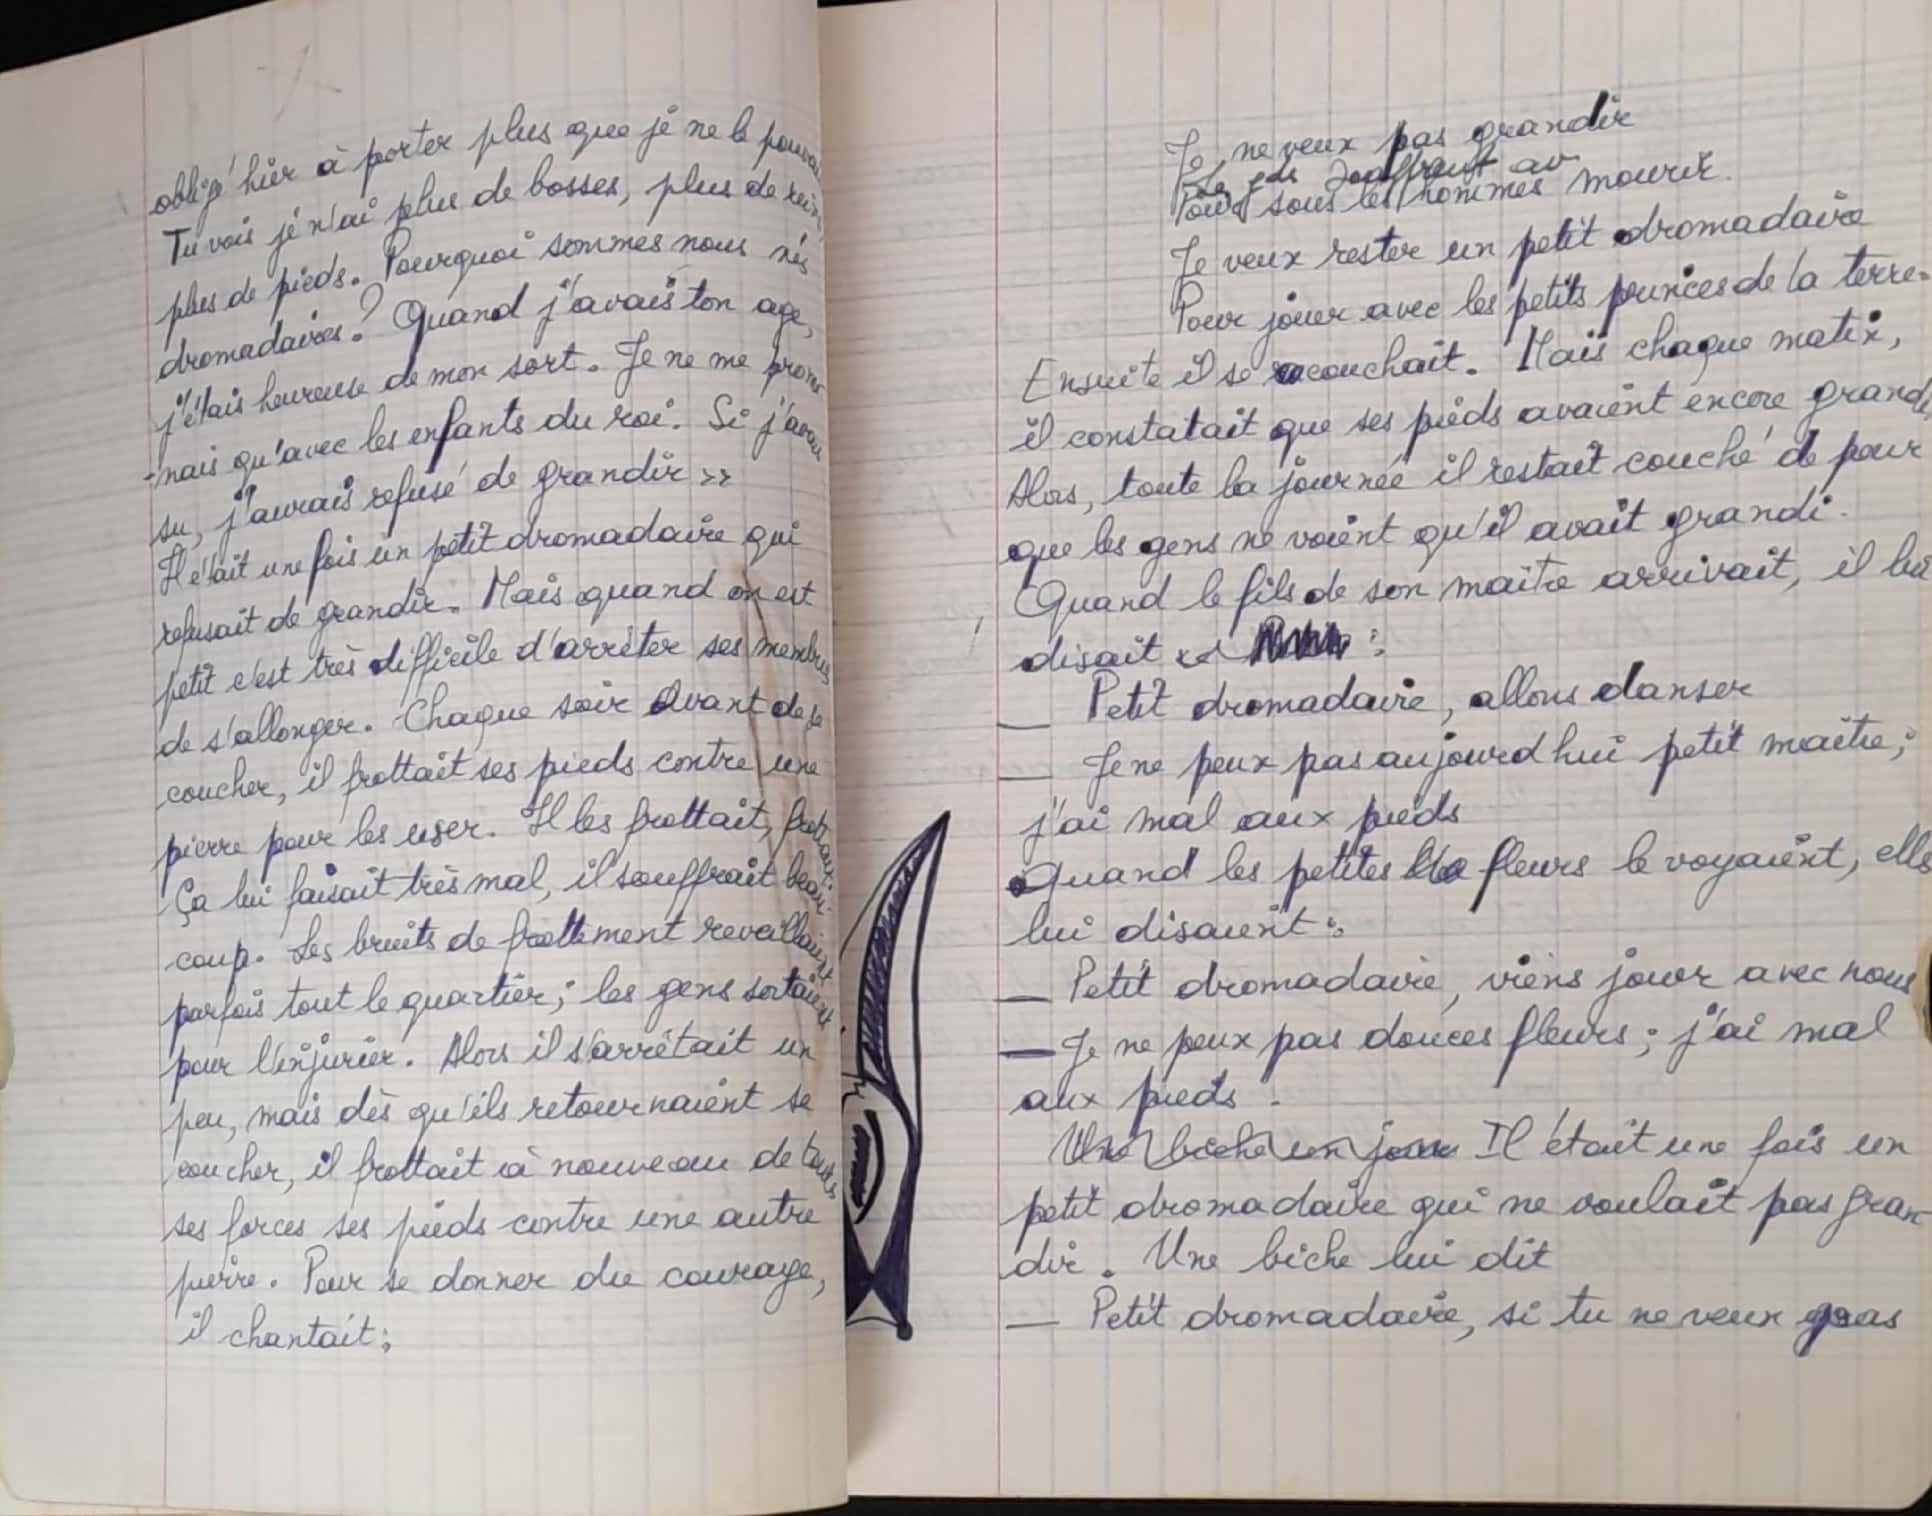 obligé hier à porter plus que je ne le pouvai
Tu vois je n'ai plus de bosses, plus de rein,
plus de pieds. Pourquoi sommes nous nés
dromadaires? Quand j'avais ton age,
j'étais heureuse de mon sort. Je ne me prome
-nais qu'avec les enfants du roi. Si j'avais
su, j'aurais refusé de grandir >>
Il était une fois un petit dromadaire qui
refusait de grandir. Mais quand on est
petit c'est très difficile d'arrêter ses membres
de s'allonger. Chaque soir avant de se
coucher, il frottait ses pieds contre une
pierre pour les user. Il les frottait, frottait.
Ça lui faisait très mal, il souffrait beau-
coup. Les bruits de frottement reveillaient
parfois tout le quartier; les gens sortaient
pour l'injurier. Alors il s'arrêtait un
peu, mais dès qu'ils retournaient se
coucher, il frottait à nouveau de toutes
ses forces ses pieds contre une autre
pierre. Pour se donner du courage,
il chantait:
Je ne veux pas grandir
Pour sous les hommes mourir.
Je veux rester un petit dromadaire
Pour jouer avec les petits princes de la terre.
Ensuite il se recouchait. Mais chaque matin,
il constatait que ses pieds avaient encore grandi,
Alors, toute la journée il restait couché de peur
que les gens ne voient qu'il avait grandi.
Quand le fils de son maître arrivait, il lui
disait :
— Petit dromadaire, allons danser
— Je ne peux pas aujourd hui petit maître;
j'ai mal aux pieds
Quand les petites fleurs le voyaient, elles
lui disaient:
— Petit dromadaire, viens jouer avec nous
— Je ne peux pas douces fleurs; j'ai mal
aux pieds.
Une biche un jour Il était une fois un
petit dromadaire qui ne voulait pas gran-
dir. Une biche lui dit
— Petit dromadaire, si tu ne veux pas